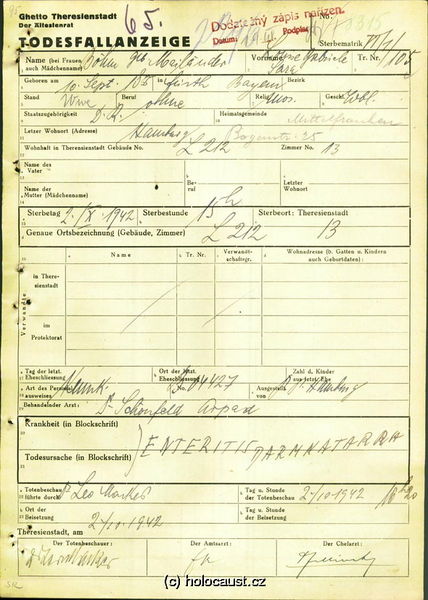 Ghetto Theresienstadt
Der Ältestenrat
65.
Dodatečný zápis nařízen.
Datum: Podpis:
No.
TODESFALLANZEIGE
Sterbematrik
Name (bei Frauen auch Mädchenname) Böhm geb Mailänder
Vorname Gabriele Sara
Tr. Nr.
Geboren am 10. Sept. in Fürth Bezirk Bayern
Stand Wwe Beruf ohne Religion Mos. Geschl. Wbl.
Staatszugehörigkeit D.R. Heimatsgemeinde Mittelfranken
Letzer Wohnort (Adresse) Hamburg 25
Wohnhaft in Theresienstadt Gebäude No. L 212 Zimmer No. 13
Name des Vater Beruf Letzter Wohnort
Name der Mutter (Mädchenname)
Sterbetag 2. IX. 1942 Sterbestunde 15 h Sterbeort: Theresienstadt
Genaue Ortsbezeichnung (Gebäude, Zimmer) L 212 13
Name Tr. Nr. Verwandt-schaftsgr. Wohnadresse (b. Gatten u. Kindern auch Geburtdaten):
Verwandte
in There-sienstadt
im Protektorat
Tag der letzt. Eheschliessung Ort der letzt. Eheschliessung Zahl d. Kinder aus letzt. Ehe
Art des Personal-ausweises Ausgestellt von Hamburg
Behandelnder Arzt: Dr Schönfeld Arpad
Krankheit (in Blockschrift)
ENTERITIS DARMKATARRH
Todesursache (in Blockschrift)
Totenbeschau führte durch Leo Markes Tag u. Stunde der Totenbeschau 2/10 1942
Ort der Beisetzung Tag u. Stunde der Beisetzung
Theresienstadt, am 2/10 1942
Der Totenbeschauer: Der Amtsarzt: Der Chefarzt:
(c) holocaust.cz